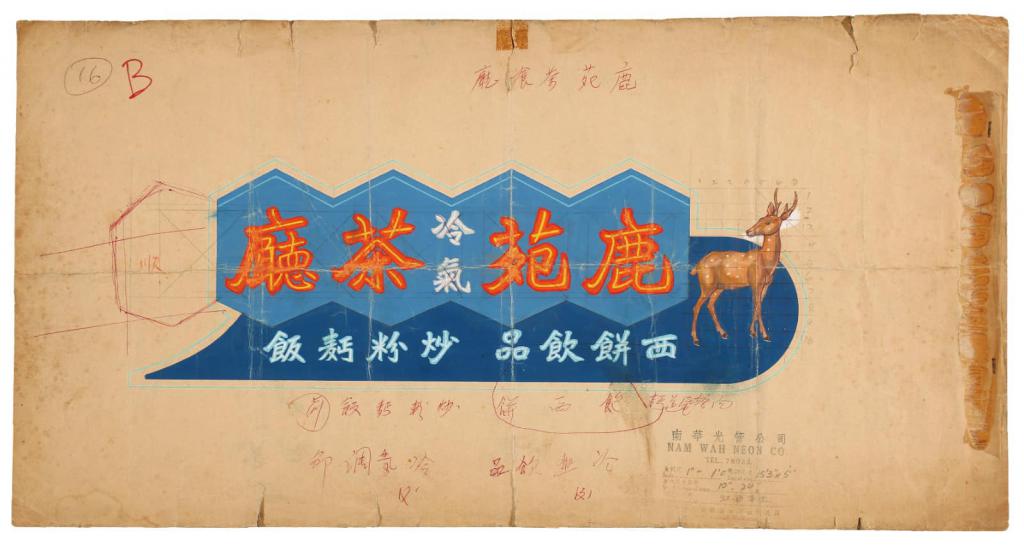 16 B
鹿苑茶食廳
鹿苑冷氣茶廳
西餅飲品 炒粉麪飯
西餅 炒粉麪飯
冷熱飲品 冷氣調
南華光管公司
NAM WAH NEON CO
TEL.
1" = 1'0" 15'3"x5'